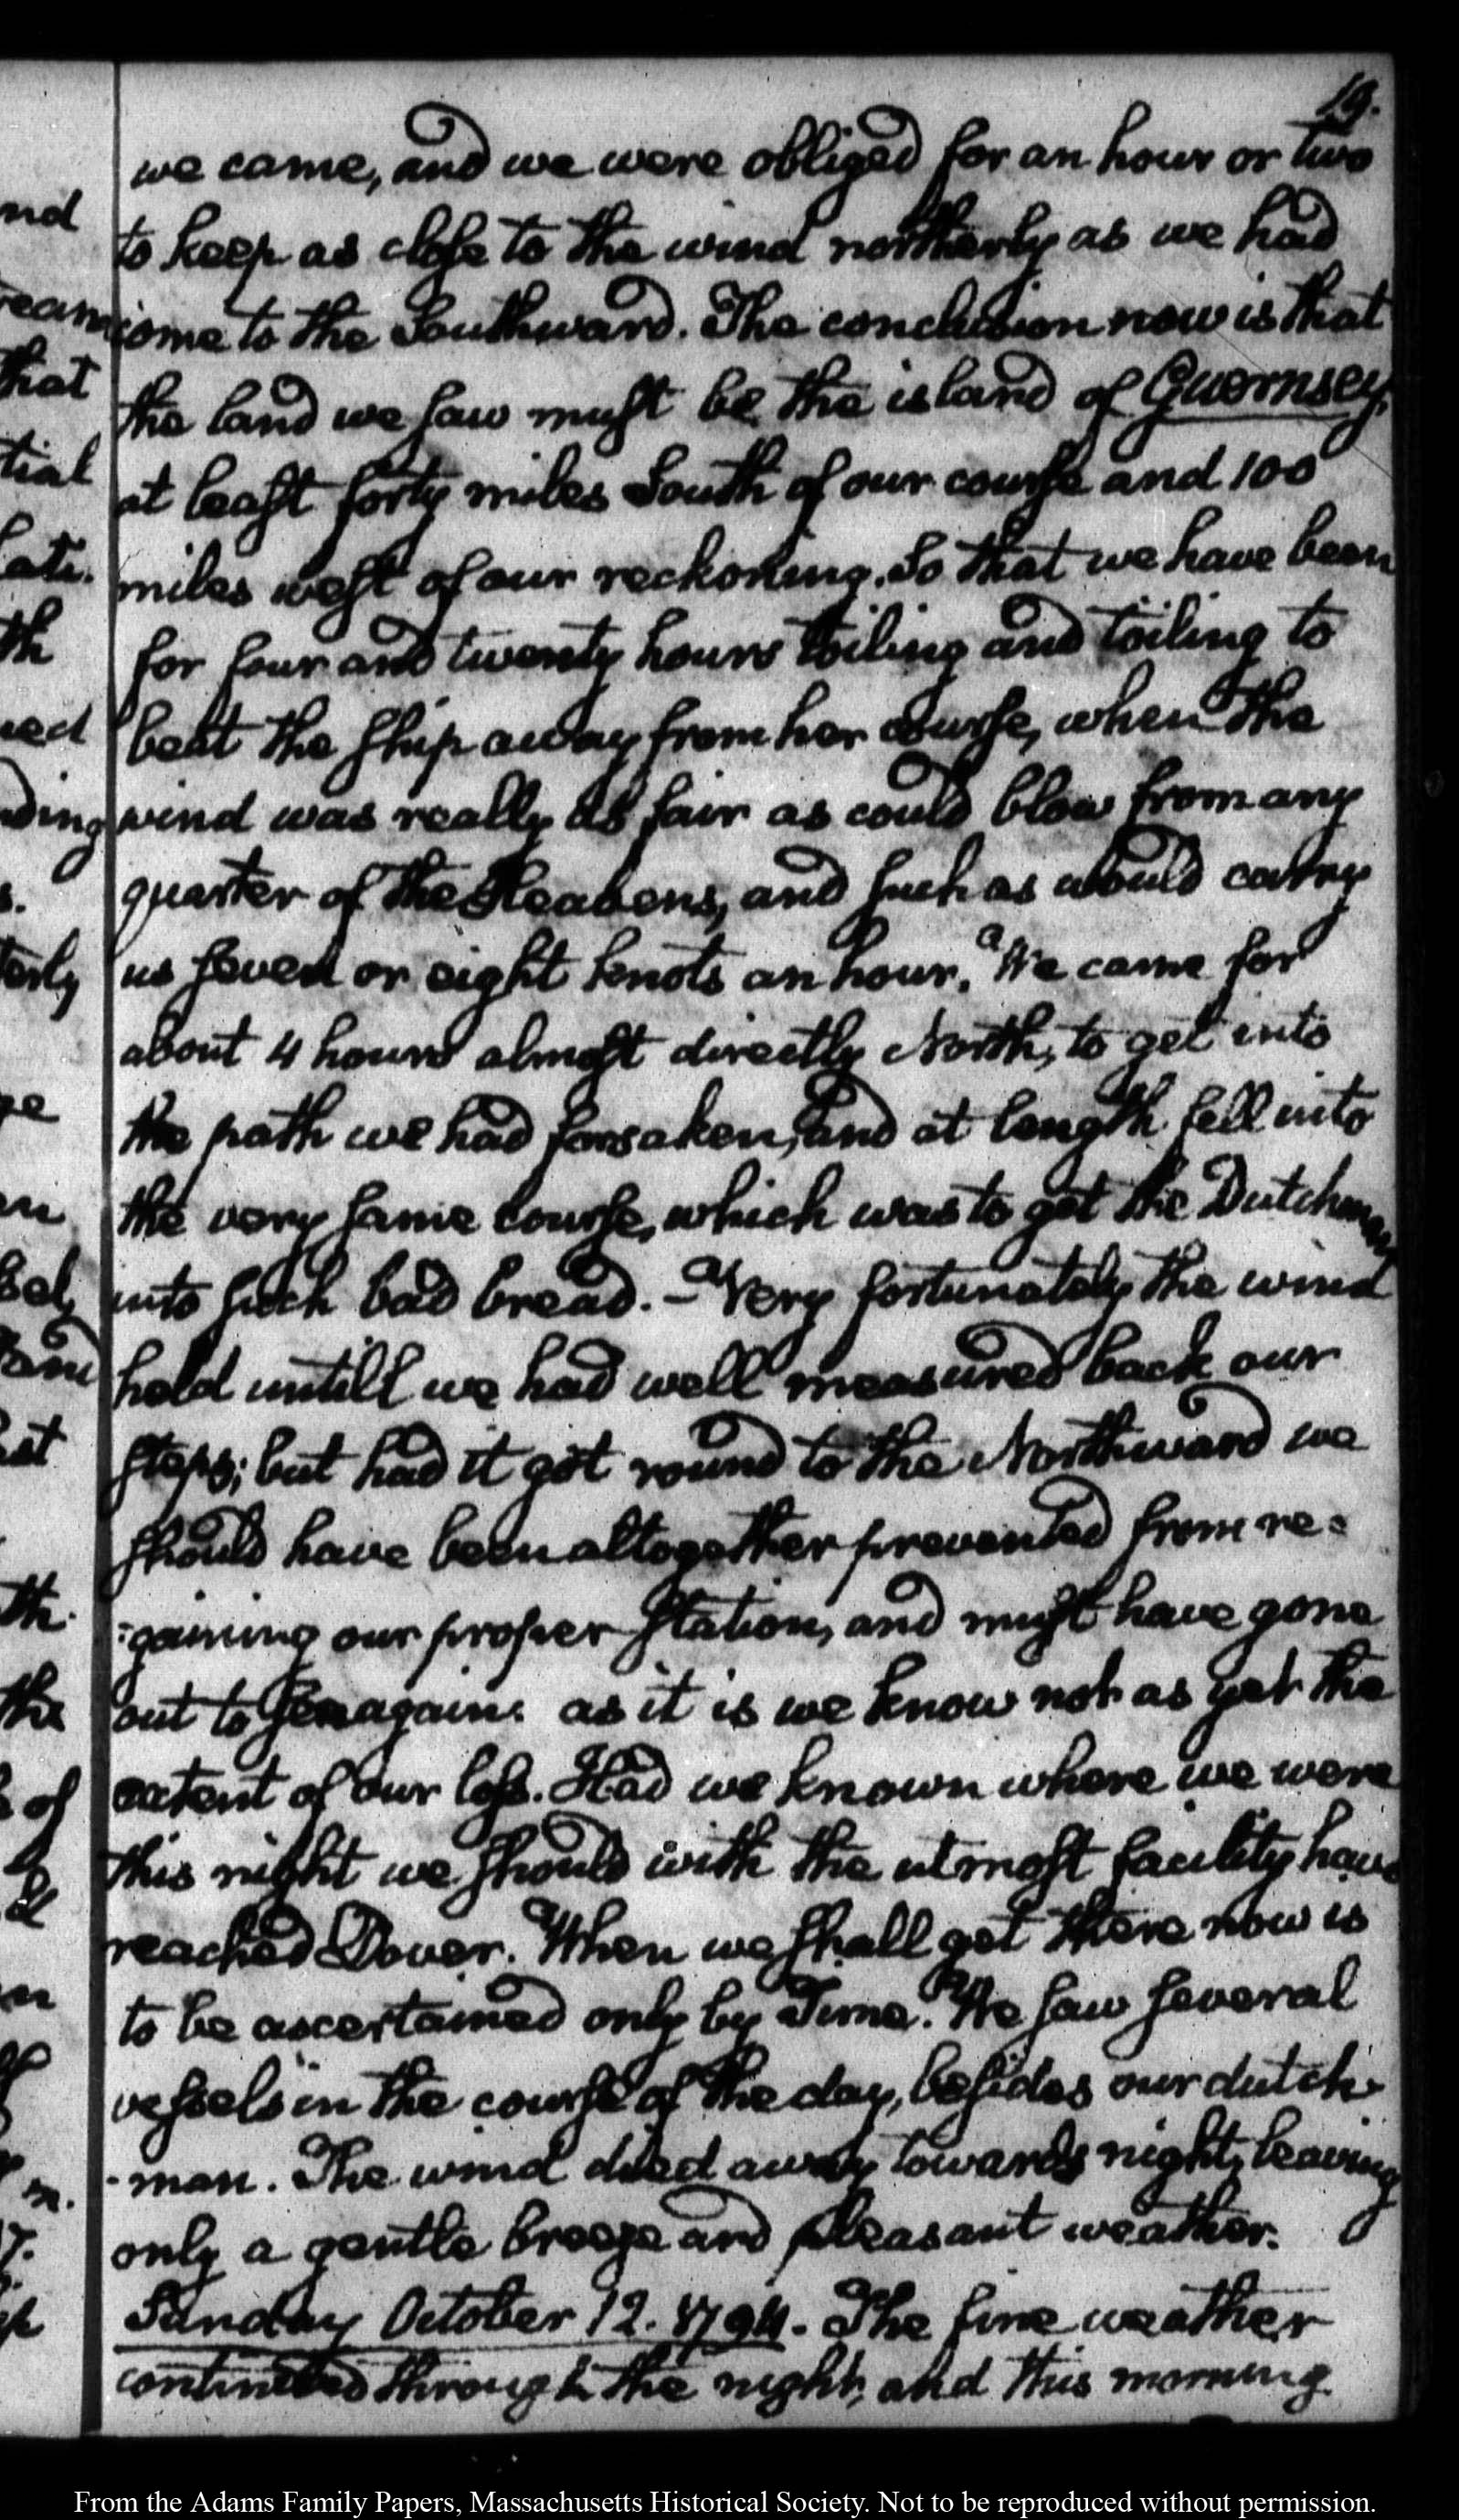 19.
we came, and we were obliged for an hour or two
nd
to keep as close to the wind northerly as we had
come to the Southward. The conclusion now is that
that
the land we saw must be the island of Guernsey,
tial
at least forty miles South of our course and 100
miles west of our reckoning. So that we have been
th
for four and twenty hours toiling and toiling to
beat the ship away from her course, when the
ding
wind was really as fair as could blow from any
quarter of the Heavens, and such as would carry
s.
terly
us seven or eight knots an hour. We came for
about 4 hours almost directly North, to get into
ge
the path we had forsaken, and at length fell into
the very same course, which was to get the Dutchman
into such bad bread. - Very fortunately the wind
held untill we had well measured back our
steps; but had it got round to the Northward we
should have been altogether prevented from re=
th.
=gaining our proper station, and must have gone
the
out to sea again. as it is we know not as yet the
of
extent of our loss. Had we known where we were
this night we should with the utmost facility have
reached Dover. When we shall get there now is
to be ascertained only by Time. We saw several
vessels in the course of the day, besides our dutch-
-man. The wind died away towards night, leaving
only a gentle breeze and pleasant weather.
Sunday October 12. 1794. The fine weather
continued through the night, and this morning
From the Adams Family Papers, Massachusetts Historical Society. Not to be reproduced without permission.